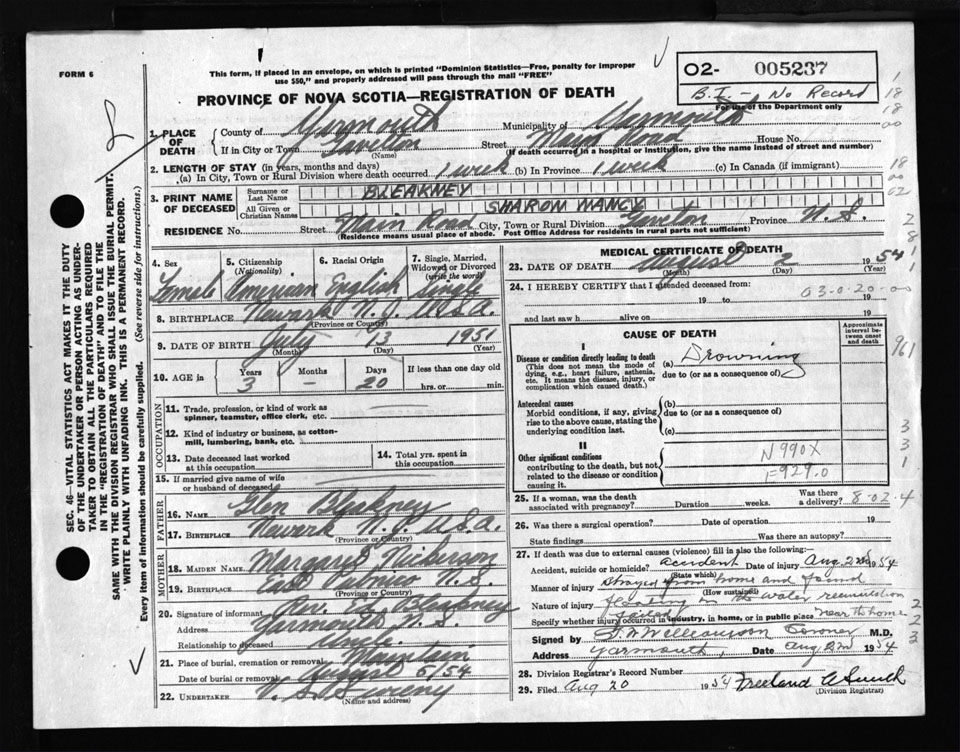 FORM 6
This form, if placed in an envelope, on which is printed "Dominion Statistics—Free, penalty for improper
use $50," and properly addressed will pass through the mail "FREE"
O2- 005237
B.I. - No Record
For use of the Department only
PROVINCE OF NOVA SCOTIA—REGISTRATION OF DEATH
1. PLACE OF DEATH
County of Yarmouth Municipality of Yarmouth
If in City or Town Street Main Road House No.
(Name) (If death occurred in a hospital or institution, give the name instead of street and number)
2. LENGTH OF STAY (in years, months and days)
(a) In City, Town or Rural Division where death occurred 1 week (b) In Province 1 week (c) In Canada (if immigrant)
3. PRINT NAME OF DECEASED
Surname or Last Name BLEAKNEY
All Given or Christian Names SHARON NANCY
RESIDENCE No. Street Main Road City, Town or Rural Division Province N.S.
(Residence means usual place of abode. Post Office Address for residents in rural parts not sufficient)
4. Sex Female
5. Citizenship (Nationality) American
6. Racial Origin English
7. Single, Married, Widowed or Divorced (write the word) Single
8. BIRTHPLACE Newark N.J. U.S.A.
(Province or Country)
9. DATE OF BIRTH July 13 1951
(Month) (Day) (Year)
10. AGE in Years 3 Months – Days 20 If less than one day old
hrs. or min.
OCCUPATION
11. Trade, profession, or kind of work as
spinner, teamster, office clerk, etc.
12. Kind of industry or business, as cotton-
mill, lumbering, bank, etc.
13. Date deceased last worked
at this occupation
14. Total yrs. spent in
this occupation
15. If married give name of wife
or husband of deceased
FATHER
16. NAME Glen Bleakney
17. BIRTHPLACE Newark N.J. U.S.A.
(Province or Country)
MOTHER
18. MAIDEN NAME Margaret Nickerson
19. BIRTHPLACE East Pubnico N.S.
(Province or Country)
20. Signature of informant Bleakney
Address Yarmouth N.S.
Relationship to deceased Uncle.
21. Place of burial, cremation or removal Mountain
Date of burial or removal August 6/54
22. UNDERTAKER Sweeny
(Name and address)
MEDICAL CERTIFICATE OF DEATH
23. DATE OF DEATH August 2 1954
(Month) (Day) (Year)
24. I HEREBY CERTIFY that I attended deceased from:
19 to 19
03-0-20-00
and last saw h alive on 19
CAUSE OF DEATH
Approximate interval between onset and death
I
Disease or condition directly leading to death
(This does not mean the mode of
dying, e.g., heart failure, asthenia,
etc. It means the disease, injury, or
complication which caused death.)
(a) Drowning
due to (or as a consequence of)
Antecedent causes
Morbid conditions, if any, giving
rise to the above cause, stating the
underlying condition last.
(b)
due to (or as a consequence of)
(c)
II
Other significant conditions
contributing to the death, but not
related to the disease or condition
causing it.
N990X
E929.0
25. If a woman, was the death
associated with pregnancy? Duration weeks. Was there a delivery?
8-02-4
26. Was there a surgical operation? Date of operation 19
State findings Was there an autopsy?
27. If death was due to external causes (violence) fill in also the following:
Accident, suicide or homicide? accident Date of injury Aug 2nd 1954
(State which)
Manner of injury Strayed from home and found
(How sustained)
Nature of injury floating in the water
Specify whether injury occurred in industry, in home, or in public place near the home
Signed by Williamson Coroner M.D.
Address Yarmouth, Date Aug 2nd 1954
28. Division Registrar's Record Number
29. Filed Aug 20 1954 Freeland
(Division Registrar)
SEC. 46—VITAL STATISTICS ACT MAKES IT THE DUTY
OF THE UNDERTAKER OR PERSON ACTING AS UNDER-
TAKER TO OBTAIN ALL THE PARTICULARS REQUIRED
IN THE "REGISTRATION OF DEATH" AND TO FILE THE
SAME WITH THE DIVISION REGISTRAR WHO SHALL ISSUE THE BURIAL PERMIT.
WRITE PLAINLY WITH UNFADING INK. THIS IS A PERMANENT RECORD.
Every item of information should be carefully supplied. (See reverse side for instructions.)